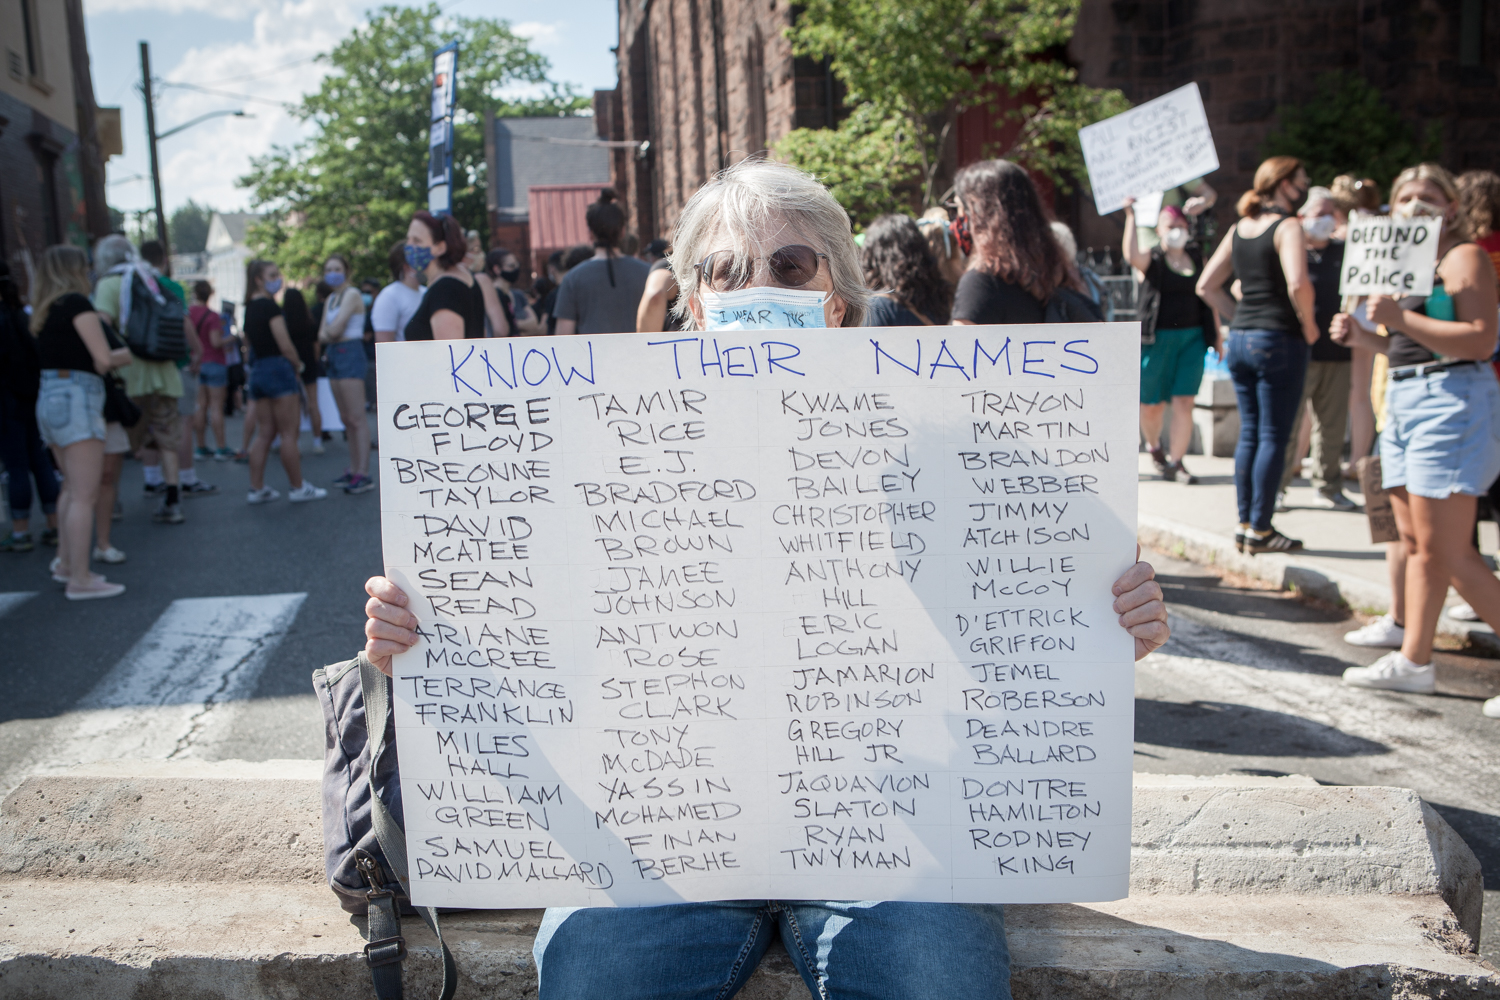 KNOW THEIR NAMES
GEORGE
FLOYD
BREONNE
TAYLOR
DAVID
MCATEE
SEAN
READ
ARIANE
MCCREE
TERRANCE
FRANKLIN
MILES
HALL
WILLIAM
GREEN
SAMUEL
DAVID MALLARD
TAMIR
RICE
E.J.
BRADFORD
MICHAEL
BROWN
JAMEE
JOHNSON
ANTWON
ROSE
STEPHON
CLARK
TONY
McDADE
YASSIN
MOHAMED
FINAN
BERHE
KWAME
JONES
DEVON
BAILEY
CHRISTOPHER
WHITFIELD
ANTHONY
HILL
ERIC
LOGAN
JAMARION
ROBINSON
GREGORY
HILL JR
JAQUAVION
SLATON
RYAN
TWYMAN
TRAYON
MARTIN
BRANDON
WEBBER
JIMMY
ATCHISON
WILLIE
McCOY
D'ETTRICK
GRIFFON
JEMEL
ROBERSON
DEANDRE
BALLARD
DONTRE
HAMILTON
RODNEY
KING
I WEAR THIS
ALL COPS
ARE RACIST
DEFUND
THE
Police